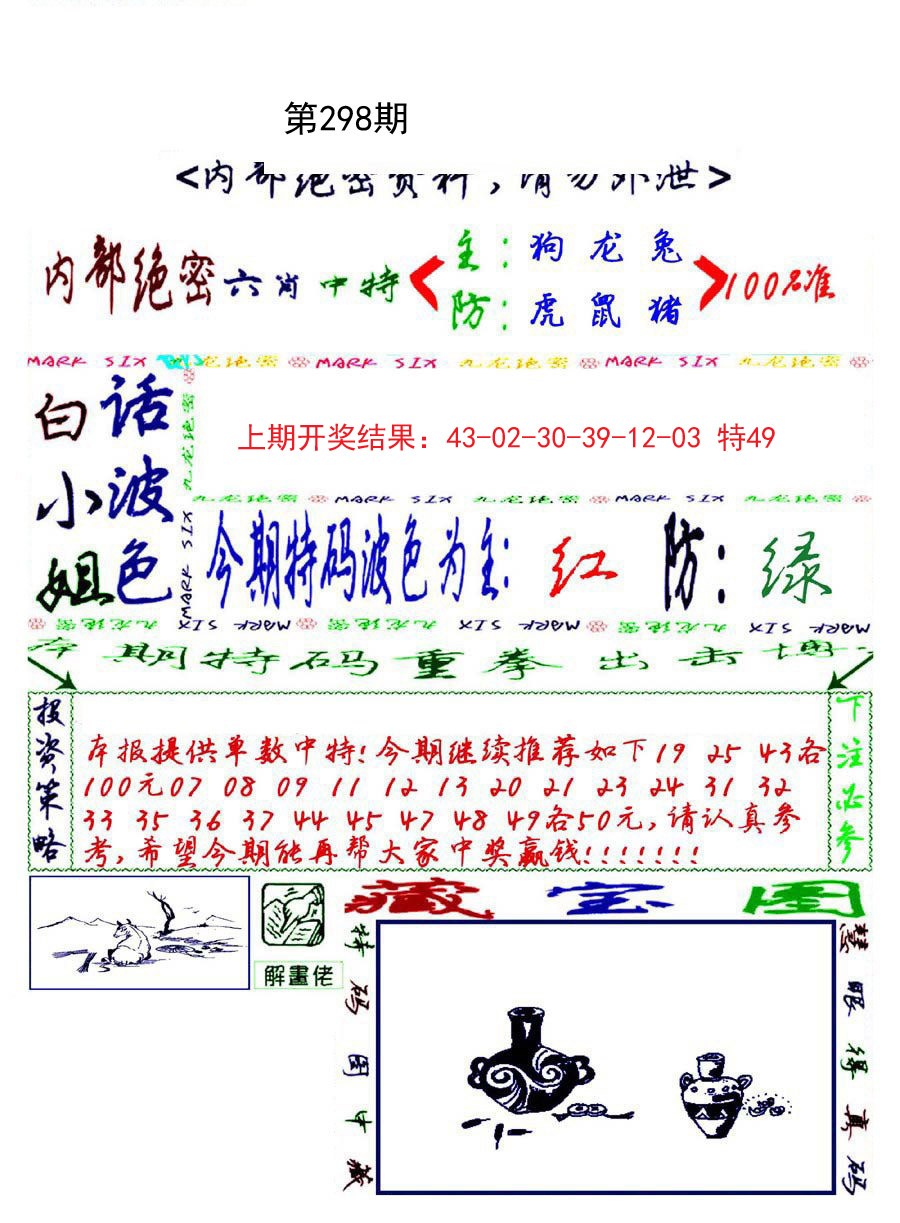 第298期
<内部绝密资料,请勿外泄>
内部绝密六肖中特
主:狗 龙 兔
防:虎 鼠 猪
100%准
MARK SIX 九龙绝密 MARK SIX 九龙绝密 MARK SIX 九龙绝密
白小姐
话波色
九龙绝密 MARK SIX
上期开奖结果：43-02-30-39-12-03 特49
九龙绝密 MARK SIX 九龙绝密 MARK SIX 九龙绝密
今期特码波色为主: 红 防: 绿
九龙绝密 MARK SIX 九龙绝密 MARK SIX 九龙绝密 MARK SIX
本期特码重拳出击博
投资策略
本报提供单数中特!今期继续推荐如下19 25 43各
100元07 08 09 11 12 13 20 21 23 24 31 32
33 35 36 37 44 45 47 48 49各50元,请认真参
考,希望今期能再帮大家中奖赢钱!!!!!!!
下注必参
解畫佬
藏宝图
特码图中藏
慧眼得真码